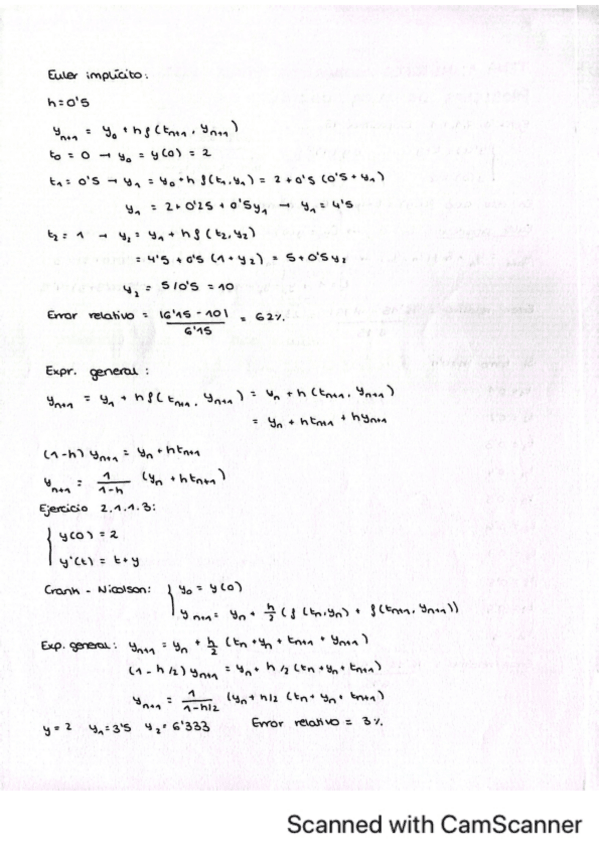 Euler implícito:
h = 0'5
y_{n+1} = y_0 + h f(t_{n+1}, y_{n+1})
t_0 = 0 → y_0 = y(0) = 2
t_1 = 0'5 → y_1 = y_0 + h f(t_1, y_1) = 2 + 0'5 (0'5 + y_1)
y_1 = 2 + 0'25 + 0'5y_1 → y_1 = 4'5
t_2 = 1 → y_2 = y_1 + h f(t_2, y_2)
= 4'5 + 0'5 (1 + y_2) = 5 + 0'5 y_2
y_2 = 5/0'5 = 10
Error relativo = |6'15 - 10| / 6'15 = 62%
Expr. general:
y_{n+1} = y_1 + h f(t_{n+1}, y_{n+1}) = y_n + h (t_{n+1}, y_{n+1})
= y_n + h t_{n+1} + h y_{n+1}
(1-h) y_{n+1} = y_n + h t_{n+1}
y_{n+1} = 1/(1-h) (y_n + h t_{n+1})
Ejercicio 2.1.1.3:
{ y(0) = 2
y'(t) = t + y
Crank - Nicolson: { y_0 = y(0)
y_{n+1} = y_n + h/2 (f(t_n, y_n) + f(t_{n+1}, y_{n+1}))
Exp. general: y_{n+1} = y_n + h/2 (t_n + y_n + t_{n+1} + y_{n+1})
(1 - h/2) y_{n+1} = y_n + h/2 (t_n + y_n + t_{n+1})
y_{n+1} = 1/(1-h/2) (y_n + h/2 (t_n + y_n + t_{n+1})
y = 2 y_1 = 3'5 y_2 = 6'333 Error relativo = 3%
Scanned with CamScanner